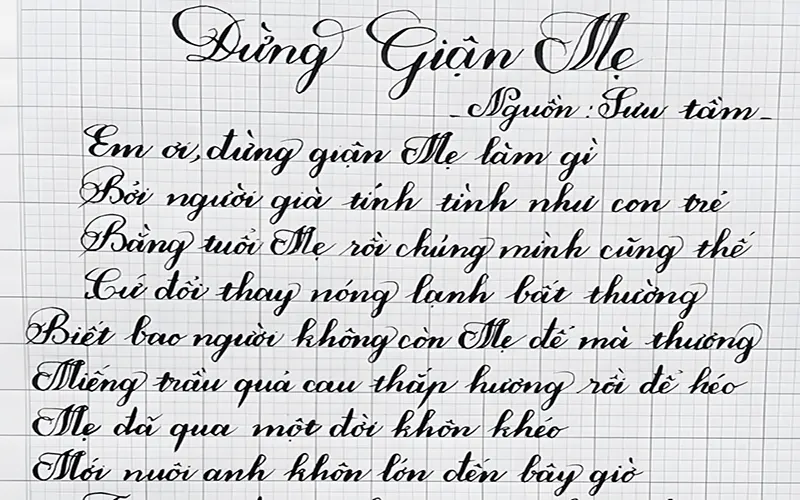 Đừng Giận Mẹ
- Nguồn: Sưu tầm -
Em ơi, đừng giận Mẹ làm gì
Bởi người già tính tình như con trẻ
Bằng tuổi Mẹ rồi chúng mình cũng thế
Cứ đổi thay nóng lạnh bất thường
Biết bao người không còn Mẹ để mà thương
Miếng trầu quả cau thắp hương rồi để héo
Mẹ đã qua một đời khôn khéo
Mới nuôi anh khôn lớn đến bây giờ